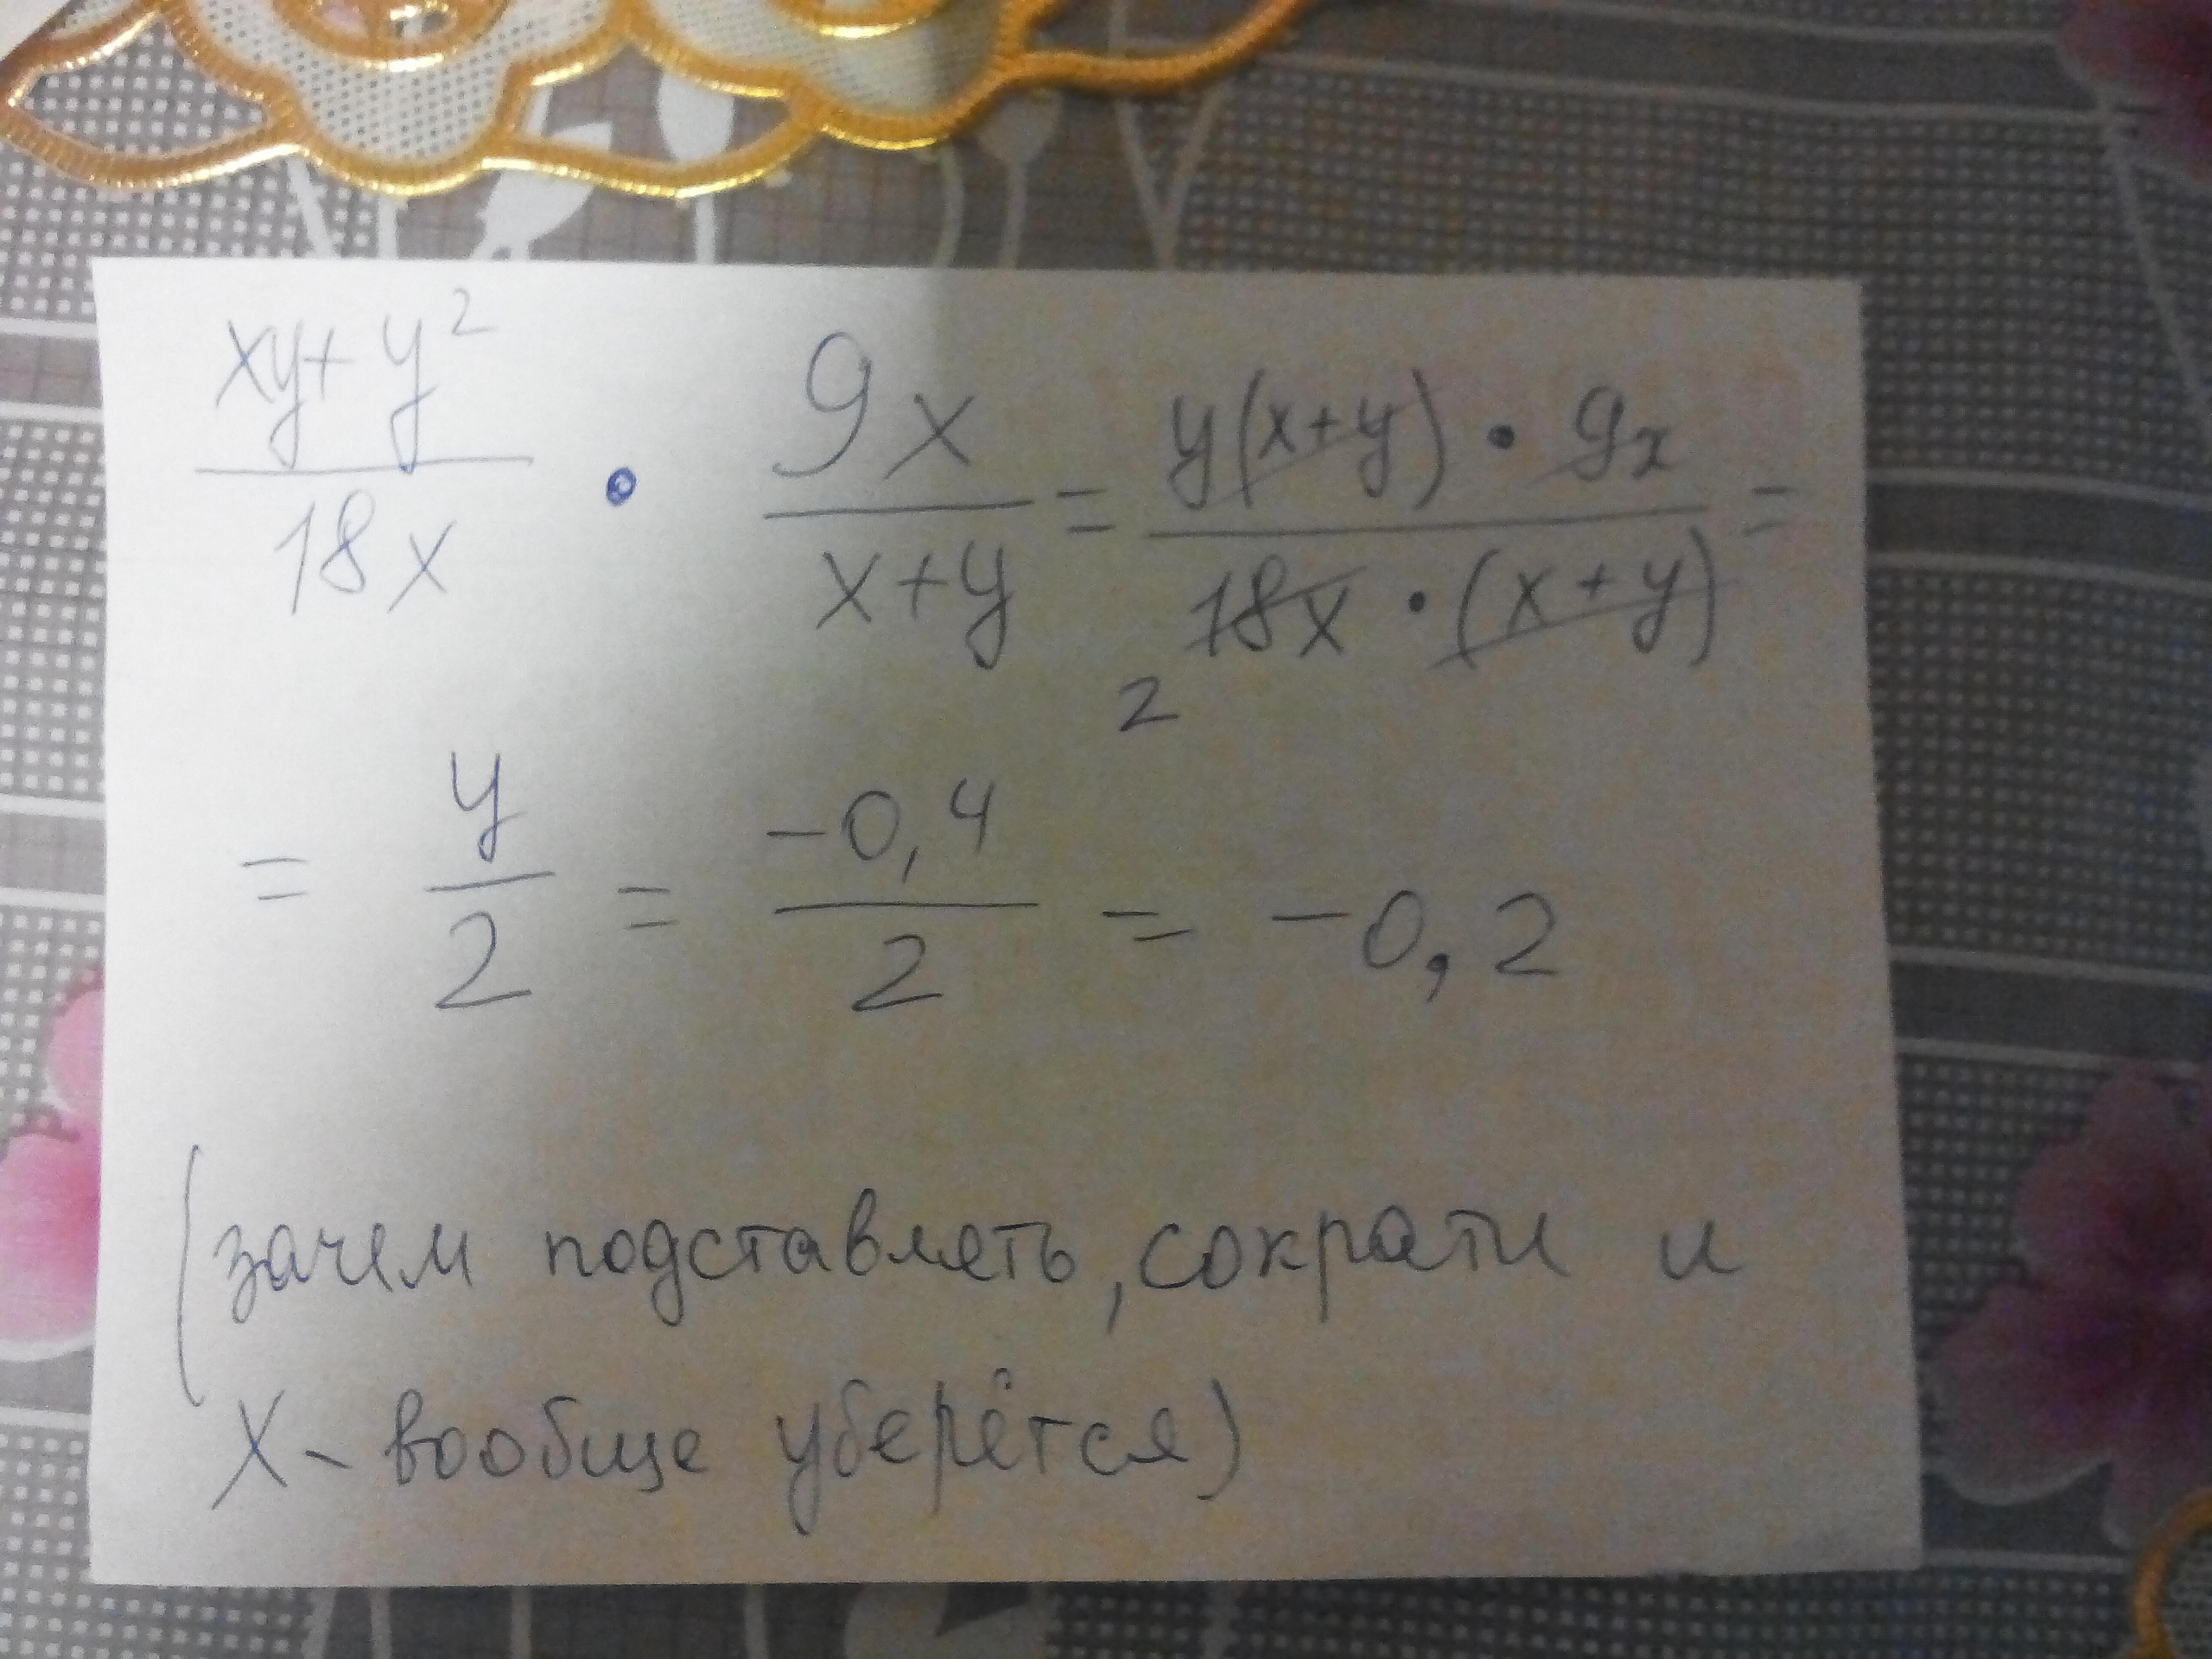 (xy+y²)/(18x) · (9x)/(x+y) = (y(x+y) · 9x)/(18x · (x+y)) =
2
= y/2 = (-0,4)/2 = -0,2
(зачем подставлять, сократи и
х - вообще уберётся)